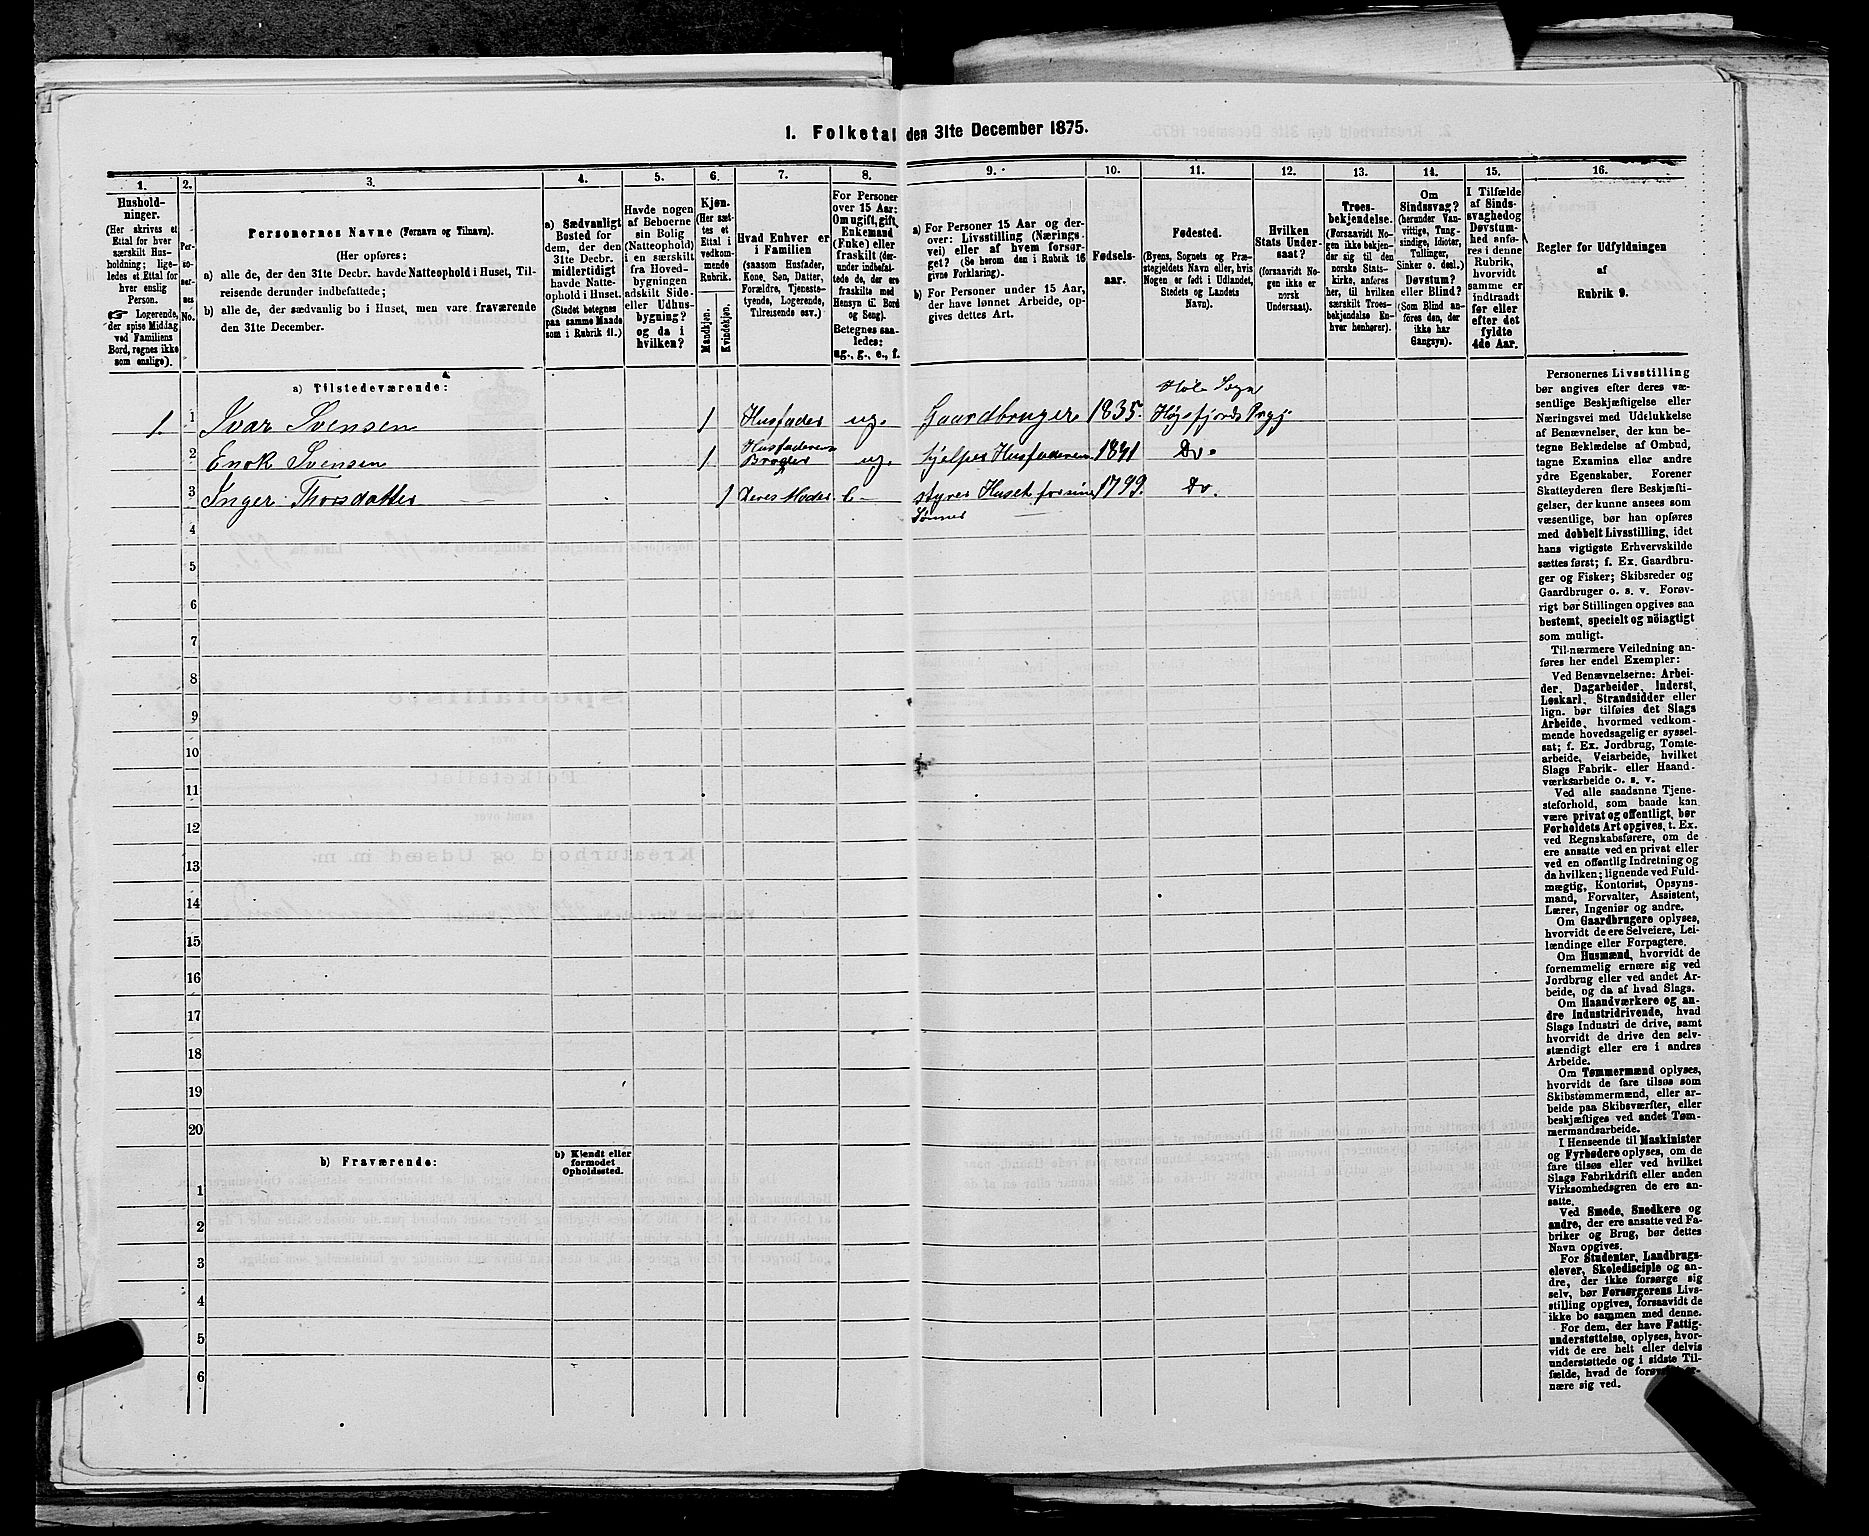 1. Folketal den 31te December 1875.
1.
Hushold-
ninger.
(Her skrives et
Ettal for hver
særskilt Hus-
holdning; lige-
ledes et Ettal for
hver enslig
Person.
☞ Logerende,
der spise Middag
ved Familiens
Bord, regnes ikke
som enslige).
2.
Per-
so-
ner-
nes
No.
3.
Personernes Navne (Fornavn og Tilnavn).
(Her opføres:
a) alle de, der den 31te Decbr. havde Natteophold i Huset, Til-
reisende derunder indbefattede;
b) alle de, der sædvanlig bo i Huset, men vare fraværende
den 31te December.
4.
a) Sædvanligt
Bosted for
dem, der den
31te Decbr.
midlertidigt
havde Natte-
ophold i Huset.
(Stedet betegnes
paa samme Maade
som i Rubrik 11.)
5.
Havde nogen
af Beboerne
sin Bolig
(Natteophold)
i en særskilt
fra Hoved-
bygningen
adskilt Side-
eller Udhus-
bygning?
og da i
hvilken?
6.
Kjøn.
(Her sæt-
tes et
Ettal i
vedkom-
mende
Rubrik.
Mandkjøn.
Kvindekjøn.
7.
Hvad Enhver er
i Familien
(saasom Husfader,
Kone, Søn, Datter,
Forældre, Tjeneste-
tyende, Logerende,
Tilreisende osv.)
8.
For Personer
over 15 Aar:
Om ugift, gift,
Enkemand
(Enke) eller
fraskilt (der-
under indbefat-
tede de, der ere
fraskilte med
Hensyn til Bord
og Seng).
Betegnes saa-
ledes:
ug., g., e., f.
9.
a) For Personer 15 Aar og der-
over: Livsstilling (Nærings-
vei) eller af hvem forsør-
get? (Se herom den i Rubrik 16
givne Forklaring).
b) For Personer under 15 Aar,
der have lønnet Arbeide, op-
gives dettes Art.
10.
Fødsels-
aar.
11.
Fødested.
(Byens, Sognets og Præ-
stegjeldets Navn eller, hvis
Nogen er født i Udlandet,
Stedets og Landets
Navn).
12.
Hvilken
Stats Under-
saat?
(forsaavidt No-
gen ikke er
norsk
Undersaat).
13.
Troes-
bekjendelse.
(Forsaavidt No-
gen ikke bekjen-
der sig til den
norske Stats-
kirke, anføres
her, til hvilken
særskilt Troes-
bekjendelse En-
hver henhører).
14.
Om
Sindssvag?
(herunder Van-
vittige, Tung-
sindige, Idioter,
Tullinger,
Sinker o. desl.)
Døvstum?
eller Blind?
(Som Blind an-
føres den, der
ikke har
Gangsyn).
15.
I Tilfælde
af Sinds-
svaghed og
Døvstum-
hed anfø-
res i denne
Rubrik,
hvorvidt
samme er
indtraadt
før eller
efter det
fyldte
4de Aar.
16.
Regler for Udfyldningen
af
Rubrik 9.
a) Tilstedeværende:
1. 1 Ivar Svensen 1 Husfader ug. Gaardbruger 1835. Hole Sogn Høgsfjords Prgj
2 Enok Svensen 1 Husfaderens Broder ug. hjelper Husfaderen 1841 Do.
3 Inger Thorsdatter 1 Deres Moder E styrer Huset for sine Sønner 1799. Do.
4
5
6
7
8
9
10
11
12
13
14
15
16
17
18
19
20
b) Fraværende:
b) Kjendt eller
formodet
Opholdssted.
1
2
3
4
5
6
Personernes Livsstilling
bør angives efter deres væ-
sentlige Beskjæftigelse eller
Næringsvei med Udelukkelse
af Benævnelser, der kun be-
tegne Beklædelse af Ombud,
tagne Examina eller andre
ydre Egenskaber. Forener
Skatteyderen flere Beskjæfti-
gelser, der kunne ansees som
væsentlige, bør han opføres
med dobbelt Livsstilling, idet
hans vigtigste Erhvervskilde
sættes først; f. Ex. Gaardbru-
ger og Fisker; Skibsreder og
Gaardbruger o. s. v. Forøv-
rigt bør Stillingen opgives saa
bestemt, specielt og nöiagtigt
som muligt.
Til nærmere Veiledning an-
føres her endel Exempler:
Ved Benævnelserne: Arbei-
der, Dagarbeider, Inderst,
Løskarl, Strandsidder eller
lign. bør tilføies det Slags
Arbeide, hvormed vedkom-
mende hovedsagelig er syssel-
sat; f. Ex. Jordbrug, Tomte-
arbeide, Veiarbeide, hvilket
Slags Fabrik- eller Haand-
værksarbeide o. s. v.
Ved alle saadanne Tjene-
steforhold, som baade kan
være privat og offentligt, bør
Forholdets Art opgives, t. Ex.
ved Regnskabsførere, om de
ere ansatte ved en privat eller
ved en offentlig Indretning og
da hvilken; lignende ved Fuld-
mægtig, Kontorist, Opsyns-
mand, Forvalter, Assistent,
Lærer, Ingeniør og andre.
Om Gaardbrugere oplyses,
hvorvidt de ere Selveiere, Lei-
lændinge eller Forpagtere.
Om Husmænd, hvorvidt de
fornemmelig ernære sig ved
Jordbrug eller ved andet Ar-
beide, og da af hvad Slags.
Om Haandværkere og an-
dre Industridrivende, hvad
Slags Industri de drive, samt
hvorvidt de drive den selv-
stændigt eller ere i andres
Arbeide.
Om Tømmermænd oplyses,
hvorvidt de fare tilsøs som
Skibstømmermænd, eller ar-
beide paa Skibsværfter, eller
beskjæftiges ved andet Tøm-
mermandsarbeide.
I Henseende til Maskinister
og Fyrbødere oplyses, om de
fare tilsøs eller ved hvilket
Slags Fabrikdrift eller anden
Virksomhedsgren de ere an-
satte.
Ved Smede, Snedkere og
andre, der ere ansatte ved Fa-
briker og Brug, bør dettes
Navn opgives.
For Studenter, Landbrugs-
elever, Skoledisciple og an-
dre, der ikke forsørge sig
selv, bør Forsørgerens Livs-
stilling opgives, forsaavidt de
ikke bo sammen med denne.
For dem, der have Fattig-
understøttelse, oplyses, hvor-
vidt de ere helt eller delvis
understøttede og i sidste Til-
fælde, hvad de
nære sig ved.